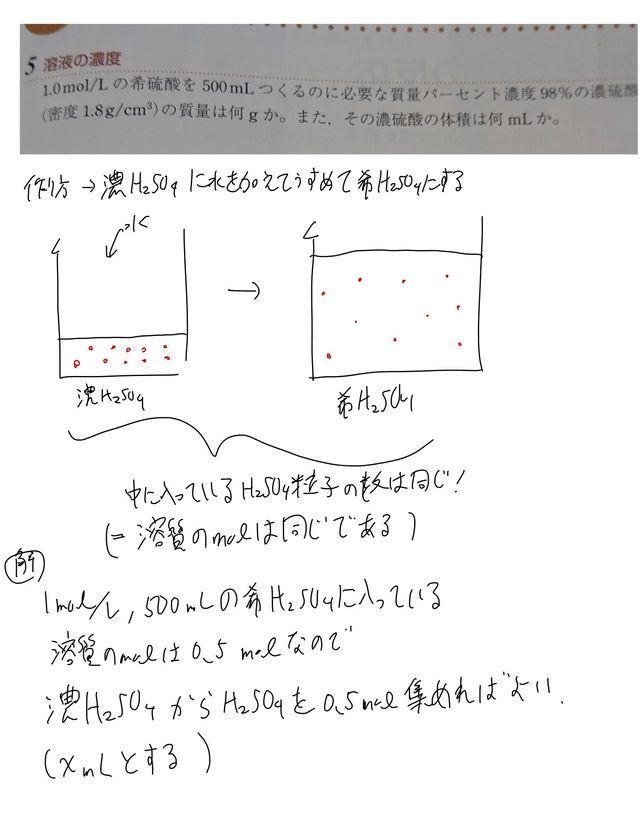 5 溶液の濃度
1.0mol/Lの希硫酸を500mLつくるのに必要な質量パーセント濃度98%の濃硫酸
(密度1.8g/cm³)の質量は何gか。また，その濃硫酸の体積は何mLか。
作り方 → 濃H₂SO₄に水を加えてうすめて希H₂SO₄にする
水
→
濃H₂SO₄
希H₂SO₄
中に入っているH₂SO₄粒子の数は同じ!
(= 溶質のmolは同じである)
解
1mol/L, 500mLの希H₂SO₄に入っている
溶質のmolは0.5 molなので
濃H₂SO₄からH₂SO₄を0.5mol集めればよい.
(xmLとする)